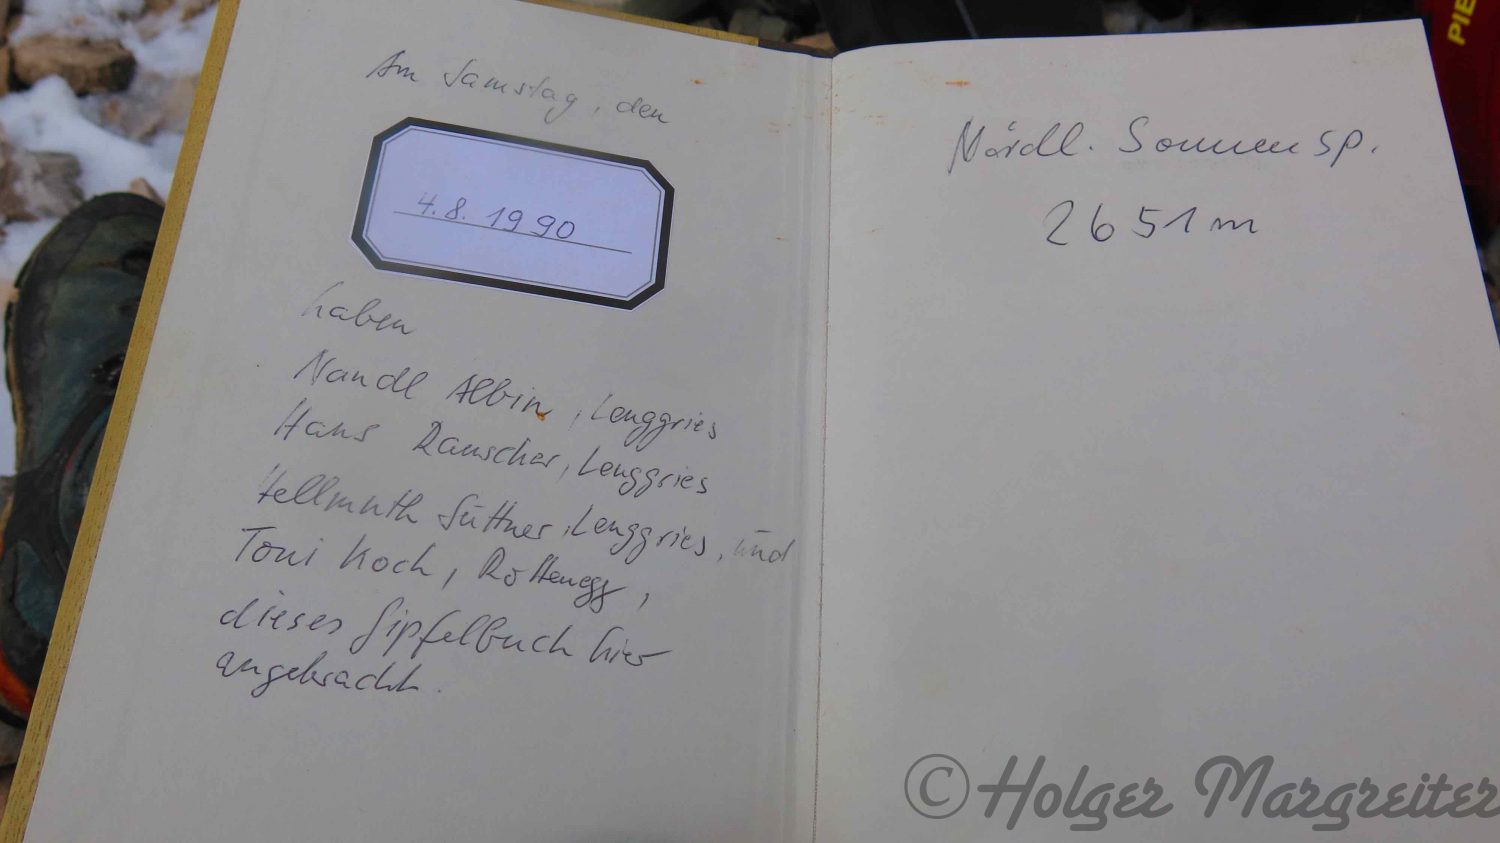 Am Samstag, den
4.8.1990
haben
Nandl Albin, Lenggries
Hans Rauscher, Lenggries
Hellmuth Süttner, Lenggries, und
Toni Koch, Rottenegg,
dieses Gipfelbuch hier
angebracht.
Nördl. Sonnensp.
2651m
PIE
© Holger Margreiter